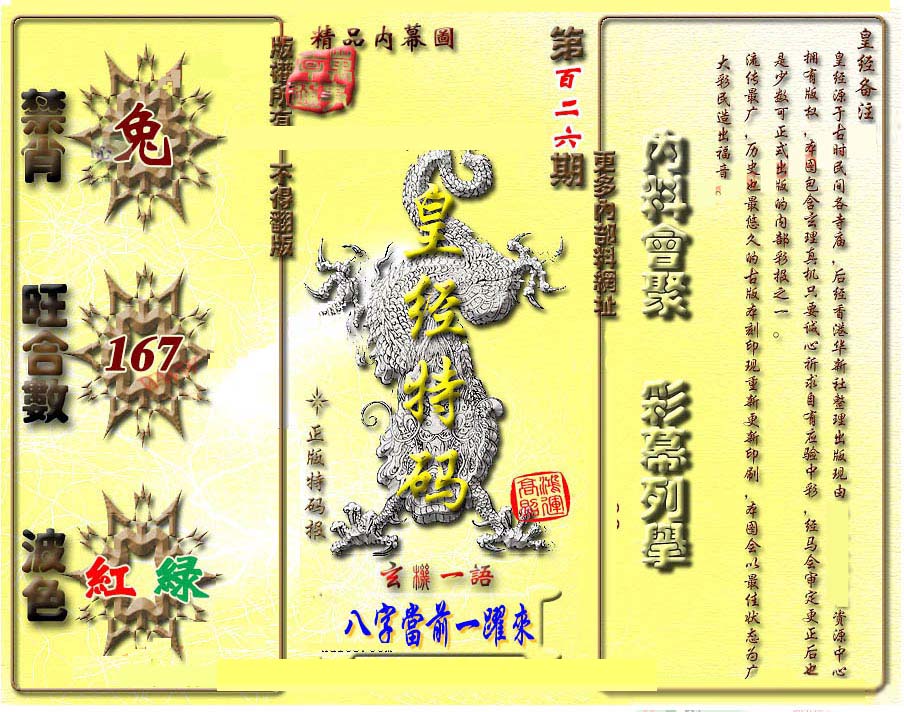 精品内幕圖
版權所有
不得翻版
第百二六期
更多內部料網址
禁肖
兔
旺合數
167
波色
紅 綠
皇经特码
正版特码报
鴻運高照
玄機一語
八字當前一躍來
內料會聚
彩幕列舉
皇经备注
皇经源于古时民间各寺庙，后经香港华新社整理出版现由 资源中心
拥有版权，本图包含玄理真机只要诚心祈求自有应验中彩，经马会审定更正后也
是少数可正式出版的内部彩报之一。
流传最广，历史也最悠久的古版本刻印现重新更新印刷，本图会以最佳状态为广
大彩民造出福音